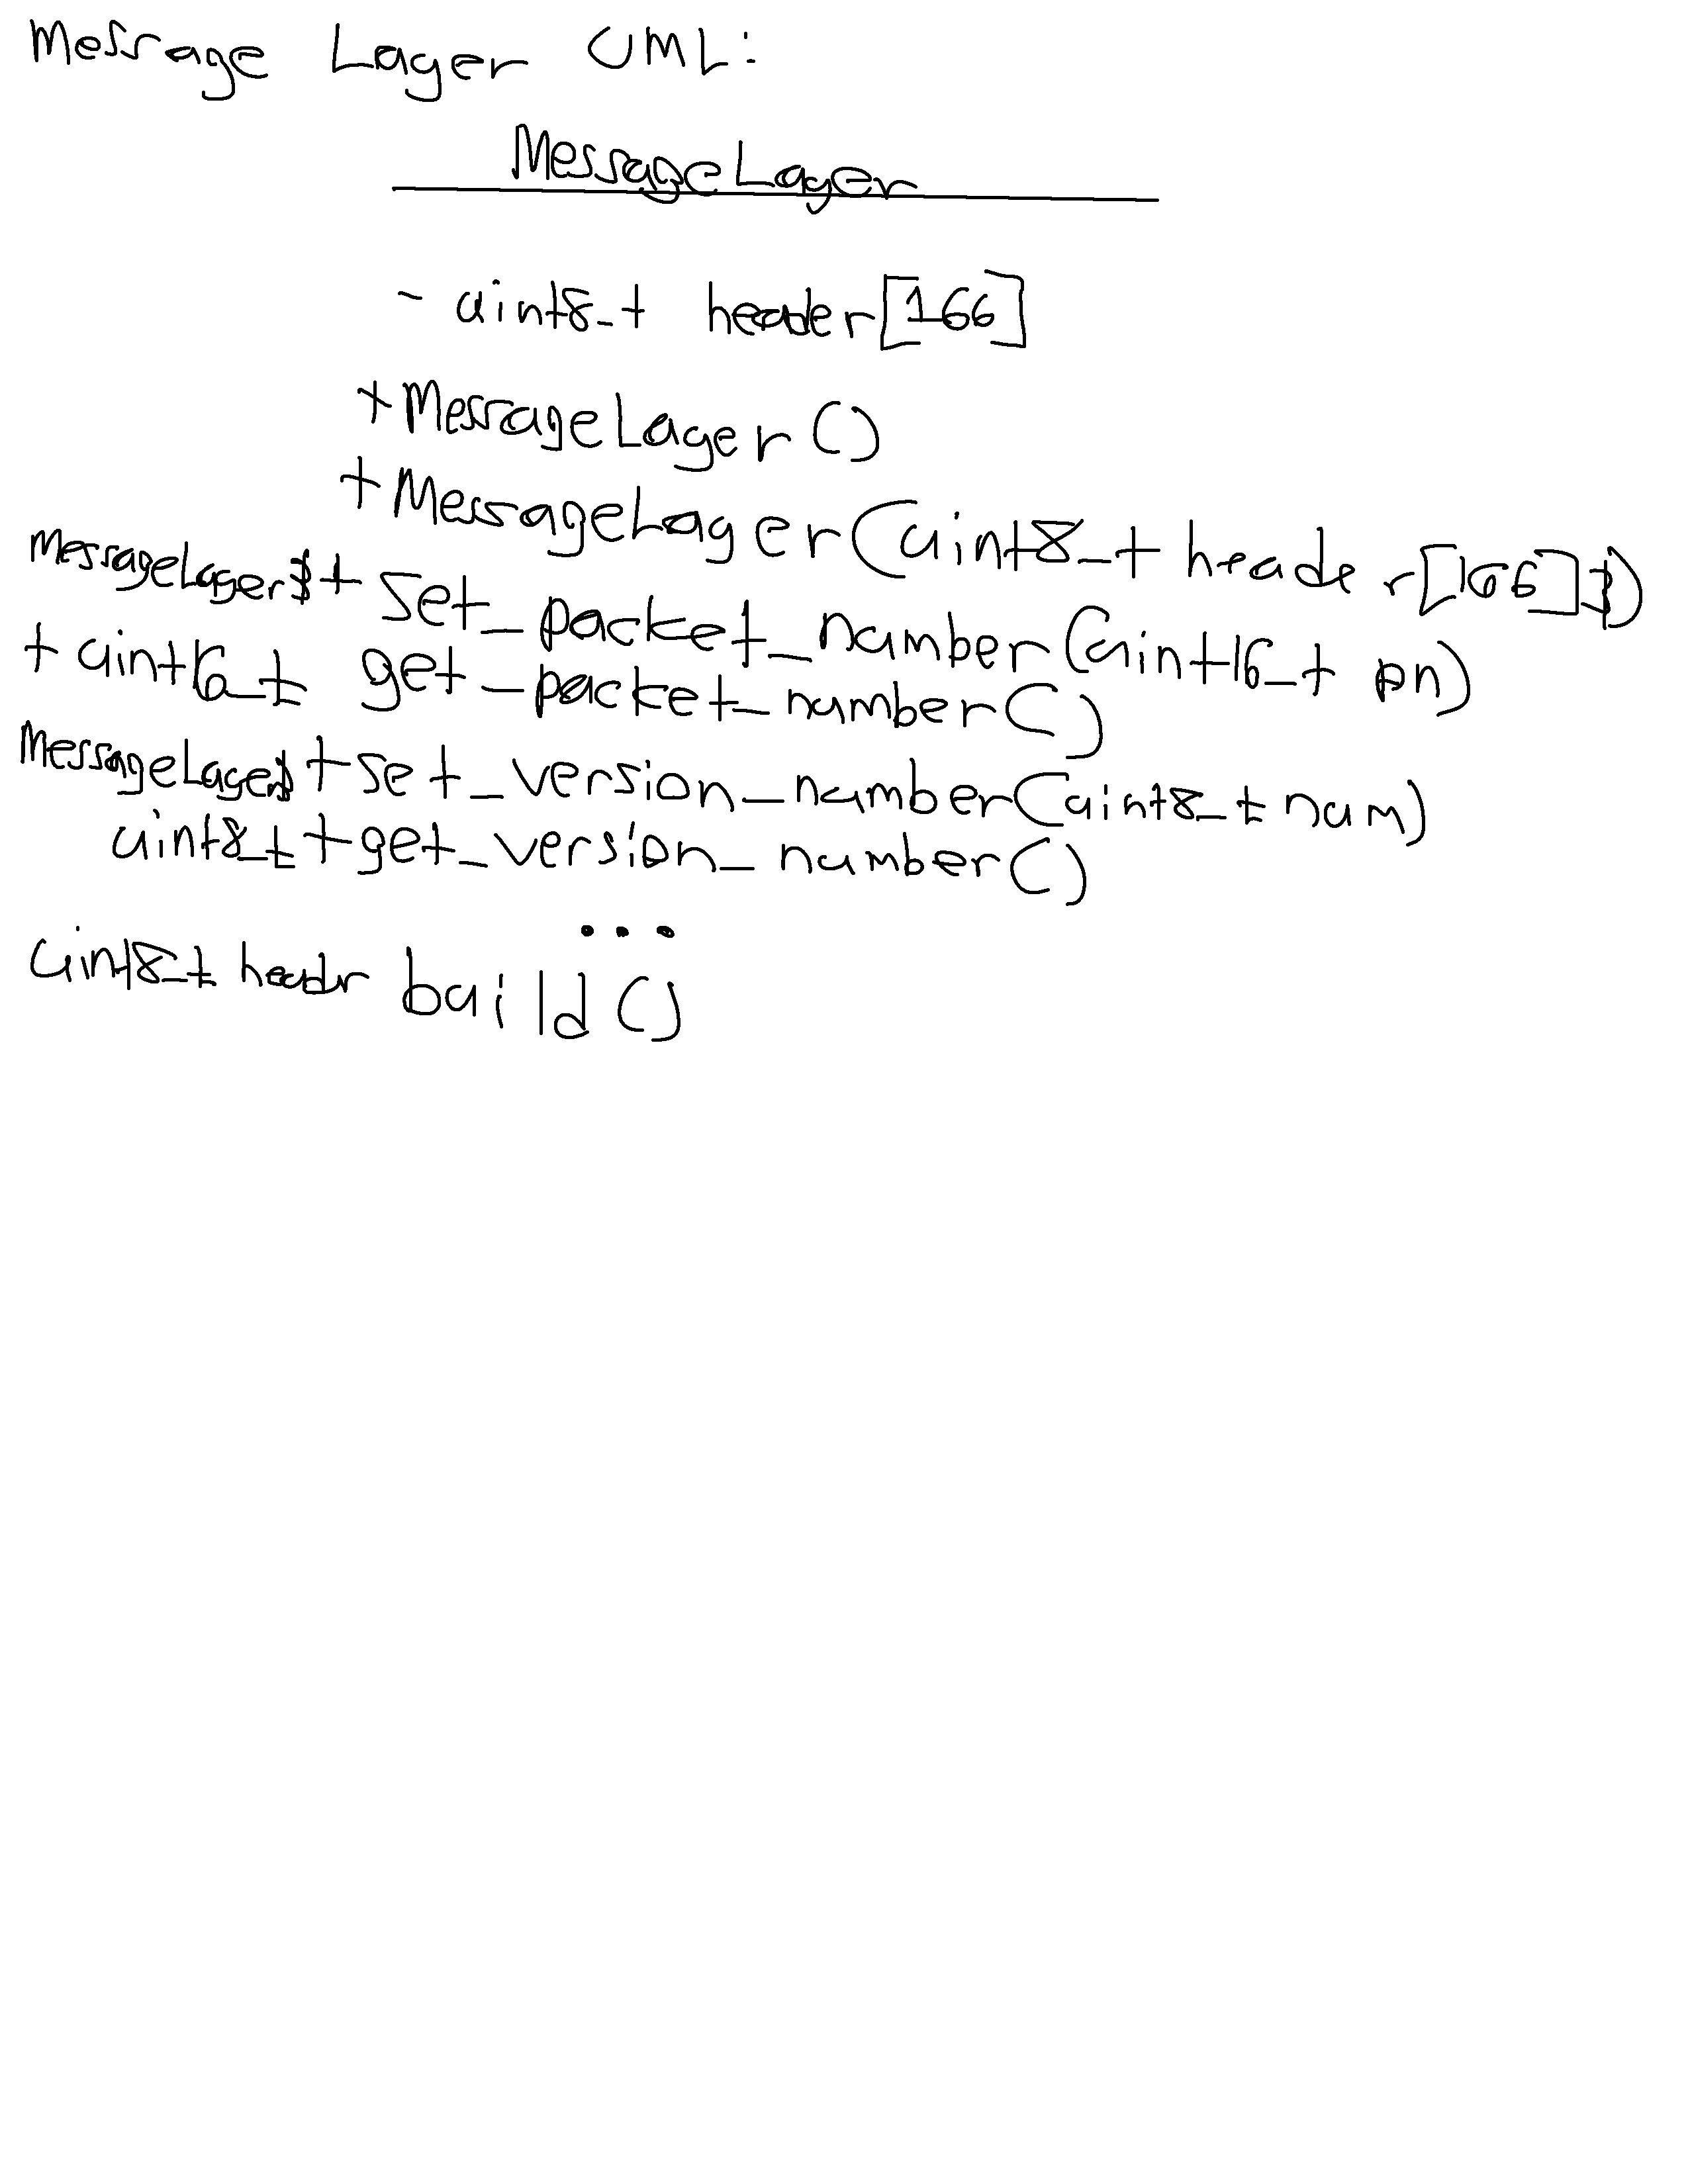 Message Layer UML:
MessageLayer
- uint8_t header[166]
+MessageLayer()
+MessageLayer(uint8_t header[166]&)
MessageLayer& + set_packet_number(uint16_t pn)
+ uint16_t get_packet_number()
MessageLayer& +set_version_number(uint8_t num)
uint8_t +get_version_number()
...
uint8_t header build()